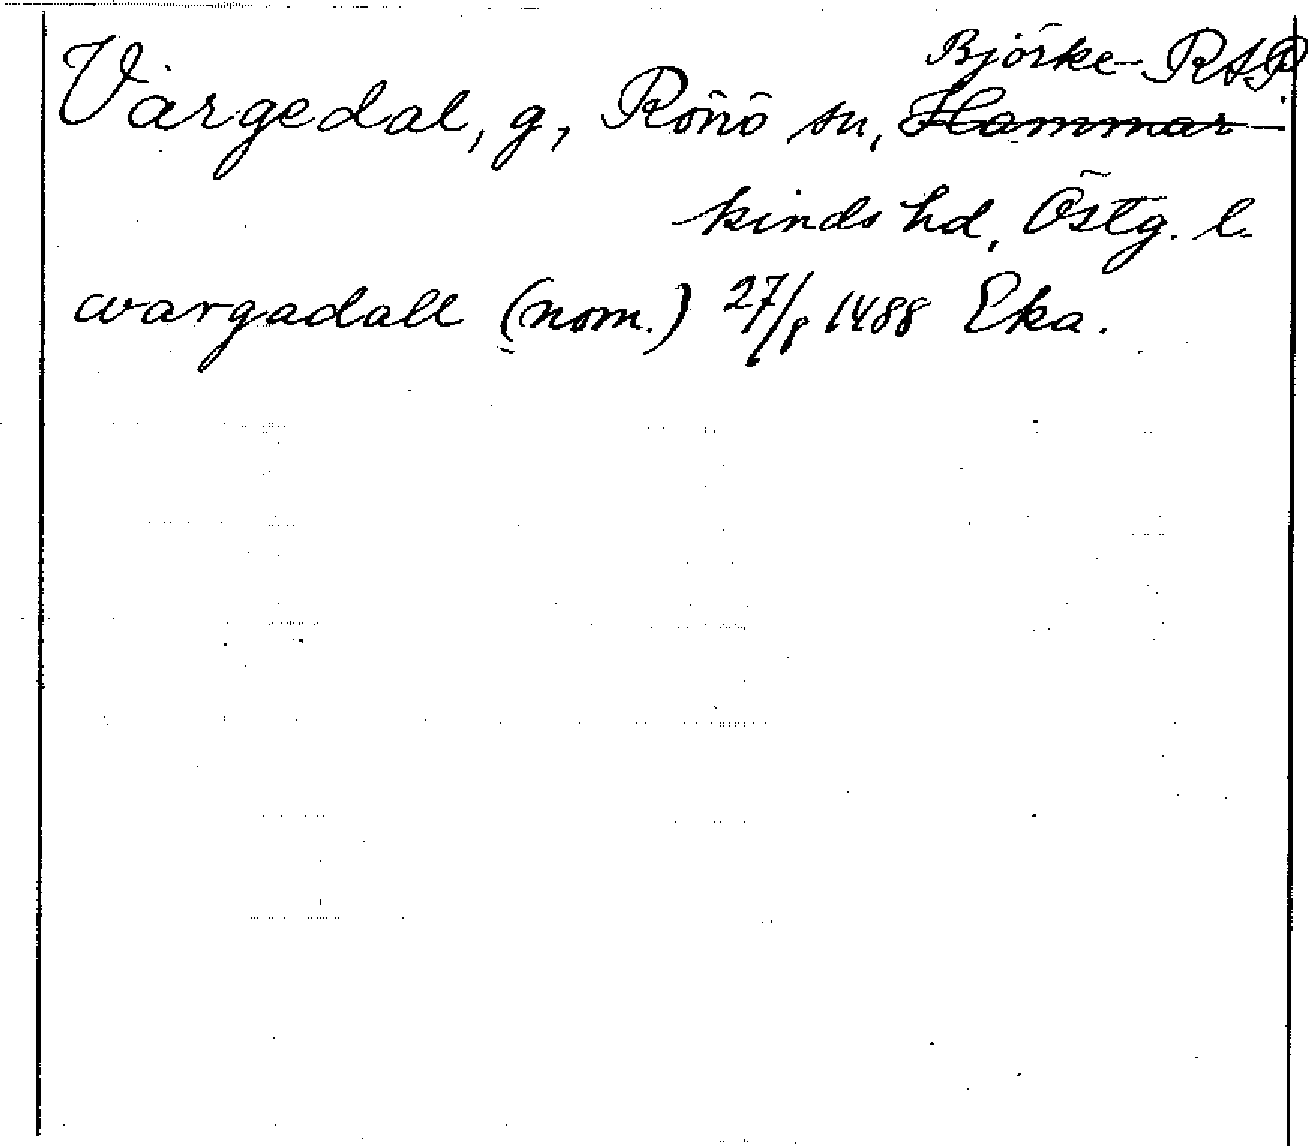 Björke- RAP.
Värgedal, g, Rönö sn, Hammar-
kinds hd, Östg. l.
wargadall (nom.) 27/8 1488 Eka.